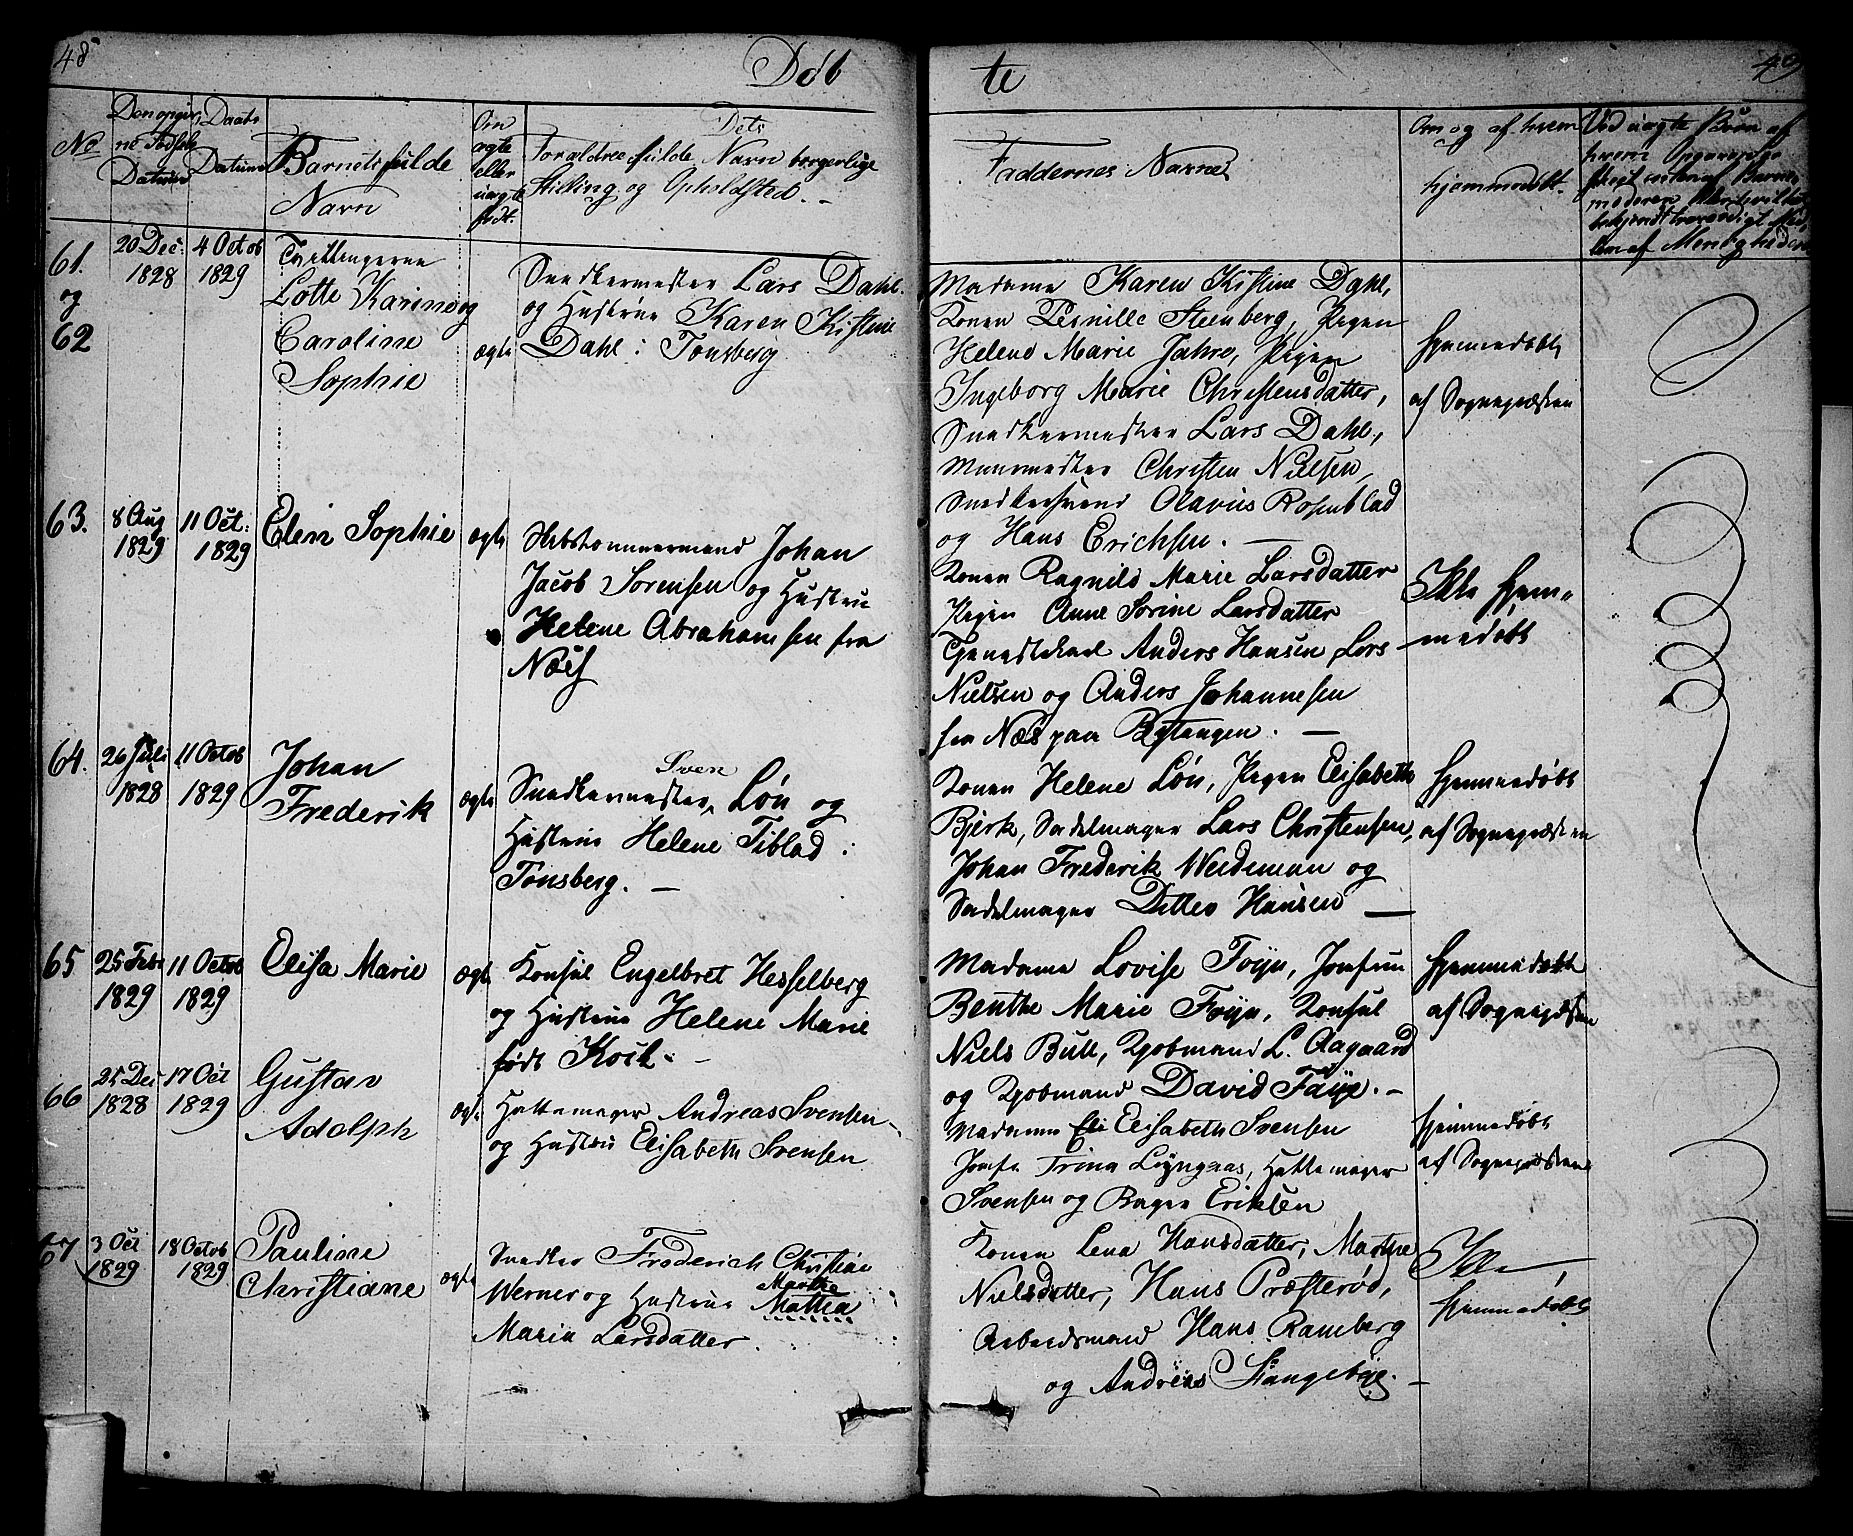 48
Døb
te
49
No
Den opgiv-
ne Fødsels
Datum
Daabs
Datum
Barnets fulde
Navn
Om
ægte
eller
uægte
født.
Dets
Forældres fulde Navn borgerlige
Stilling og Opholdsted. —
Faddernes Navne
Om og af hvem
hjemmedøbt.
Ved uægte Børn af
hvem Opgaven
moderen
af Menigheden
61.
og
62
20 Dec:
1828
4 Octob
1829
Tvillingerne
Lotte Karine og
Caroline
Sophie
ægte
Snedkermester Lars Dahl
og Hustrue Karen Kistine
Dahl i Tonsberg
Madame Karen Kistine Dahl,
Konen Pernille Steenberg, Pigen
Helene Marie Jahre, Pigen
Ingeborg Marie Christensdatter,
Snedkermester Lars Dahl,
Muurmester Christen Nielsen,
Snedkersvend Olavus Rosenblad
og Hans Erichsen. —
hjemmedøbt
af Sognepræsten
63.
8 Aug
1829
11 Oct:
1829
Elen Sophie
ægte
Johan
Jacob Sörensen og Hustru
Helene Abrahamsen fra
Næs
Konen Ragnild Marie Larsdatter
Pigen Anne Sorine Larsdatter
Tjenestekarl Anders Hansen, Lars
Nielsen og Anders Johannesen
fra Næs paa Bastangen. —
Ikke hjem-
medøbt
64.
26 Juli
1828
11 Octob
1829
Johan
Frederik
ægte
Sven
Snedkermester Løn og
Hustrue Helene Tiblad i
Tonsberg. —
Konen Helene Løn, Pigen Elisabeth
Bjerk, Sadelmager Lars Christensen,
Johan Frederik Weideman og
Sadelmager Ditlev Hansen —
hjemmedøbt
af Sognepræsten
65
25 Feb:
1829
11 Octob
1829
Elisa Marie
ægte
Konsul Engelbret Hesselberg
og Hustrue Helene Marie
født Kock. —
Madame Lovise Foyn, Jomfru
Benthe Marie Foyn, Konsul
Niels Bull, Kjøbmand L. Aagaard
og Kjøbmand David Faye. —
hjemmedøbt
af Sognepræsten
66
25 Dec
1828
17 Oct
1829
Gustav
Adolph
ægte
Hattemager Andreas Svensen
og Hustru Elisabeth Svensen
Madame Eli Elisabeth Svensen
Jomfr Trina Lÿngaas, Hattemager
Svensen og Bager Eriksen
hjemmedøbt
af Sognepræsten
67
3 Oct
1829
18 Octob
1829
Pauline
Christiane
ægte
Snedker Frederich Christian
Werner og Hustrue Mattea
Marthe
Maria Larsdatter.
Konen Lena Hansdatter, Marthe
Nielsdatter, Hans Præsterød,
Arbeidsmand Hans Ramberg
og Andreas Slangebye. —
Ikke
hjemmedøbt